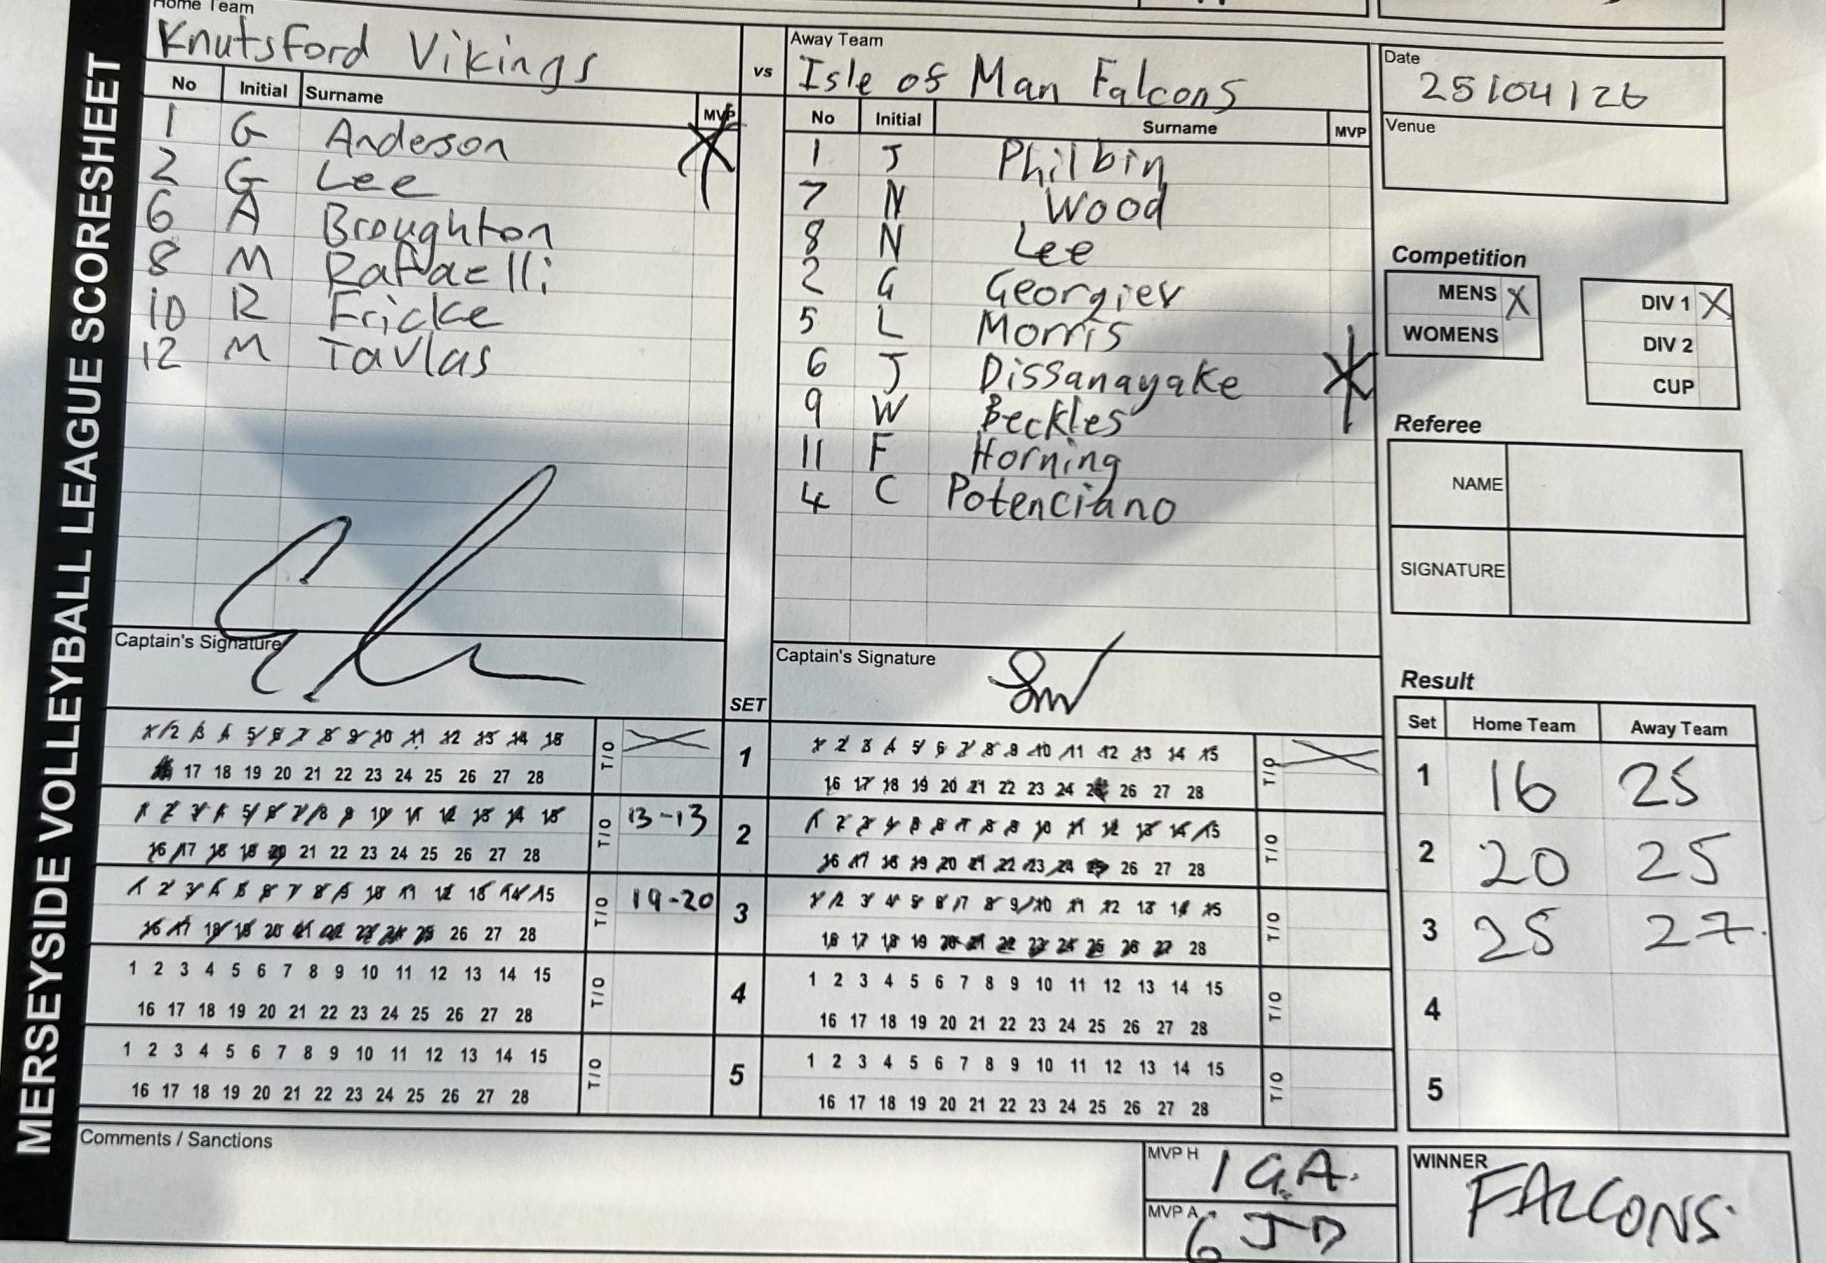 MERSEYSIDE VOLLEYBALL LEAGUE SCORESHEET
Home Team
Knutsford Vikings
vs
Away Team
Isle of Man Falcons
No Initial Surname MVP
1 G Anderson
2 G Lee
6 A Broughton
8 M Raffaelli
10 R Fricke
12 M Tavlas
Captain's Signature
No Initial Surname MVP
1 J Philbin
7 N Wood
8 N Lee
2 G Georgiev
5 L Morris
6 J Dissanayake
9 W Beckles
11 F Horning
4 C Potenciano
Captain's Signature
Date
25/04/26
Venue
Competition
MENS X
WOMENS
DIV 1 X
DIV 2
CUP
Referee
NAME
SIGNATURE
SET
1 2 3 4 5 6 7 8 9 10 11 12 13 14 15
16 17 18 19 20 21 22 23 24 25 26 27 28
T/O
1
1 2 3 4 5 6 7 8 9 10 11 12 13 14 15
16 17 18 19 20 21 22 23 24 25 26 27 28
T/O
1 2 3 4 5 6 7 8 9 10 11 12 13 14 15
16 17 18 19 20 21 22 23 24 25 26 27 28
T/O 13-13
2
1 2 3 4 5 6 7 8 9 10 11 12 13 14 15
16 17 18 19 20 21 22 23 24 25 26 27 28
T/O
1 2 3 4 5 6 7 8 9 10 11 12 13 14 15
16 17 18 19 20 21 22 23 24 25 26 27 28
T/O 19-20
3
1 2 3 4 5 6 7 8 9 10 11 12 13 14 15
16 17 18 19 20 21 22 23 24 25 26 27 28
T/O
1 2 3 4 5 6 7 8 9 10 11 12 13 14 15
16 17 18 19 20 21 22 23 24 25 26 27 28
T/O
4
1 2 3 4 5 6 7 8 9 10 11 12 13 14 15
16 17 18 19 20 21 22 23 24 25 26 27 28
T/O
1 2 3 4 5 6 7 8 9 10 11 12 13 14 15
16 17 18 19 20 21 22 23 24 25 26 27 28
T/O
5
1 2 3 4 5 6 7 8 9 10 11 12 13 14 15
16 17 18 19 20 21 22 23 24 25 26 27 28
T/O
Result
Set Home Team Away Team
1 16 25
2 20 25
3 25 27.
4
5
Comments / Sanctions
MVP H 1 G.A.
MVP A 6 JD
WINNER FALCONS.